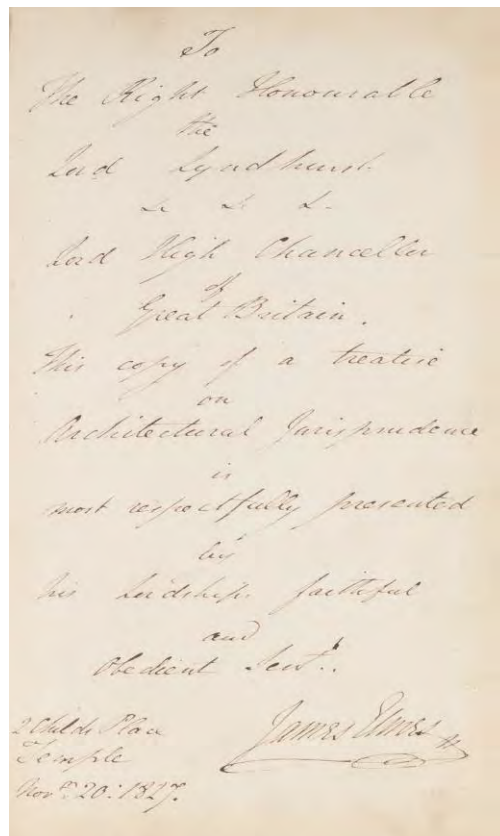 To
The Right Honourable
the
Lord Lyndhurst
&c &c &c
Lord High Chancellor
of
Great Britain.
This copy of a treatise
on
Architectural Jurisprudence
is
most respectfully presented
by
his Lordships faithful
and
Obedient Servt.
James Elmes
2 Childs Place
Temple
Novr. 20: 1827.